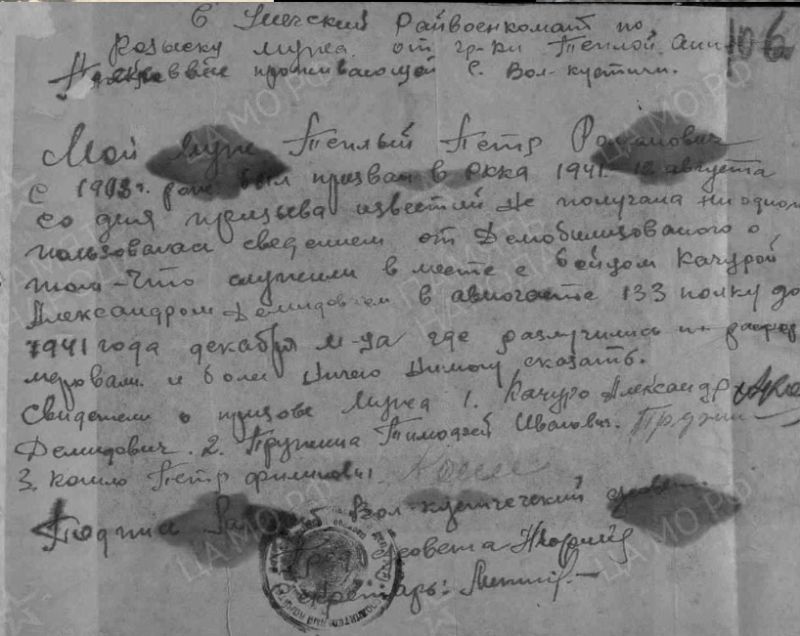 106
В Унечский Райвоенкомат по
Розыску мужа от гр-ки Теплой Анн
проживающей С. Вол-кустичи.
Мой муж Теплый Петр Романович
с 1903 г. рож был призван в Ркка 1941. 12 августа
со дня призыва известий Не получала ни одного
пользовалась сведением от Демобилизованого о
том-Что служили в месте с бойцом Качурой
Александром Демидовичем в авиочасте 133 полку до
1941 года декабря м-ца где разлучились
и боли Ничего Нимогу сказать.
Свидетели о призове Мужа 1. Качуро Александр
Демидович. 2. Пружина Тимофей Иванович.
3. кошло Петр
Подпись Вол-кустичский
совета
Секретарь:
ЦАМО РФ